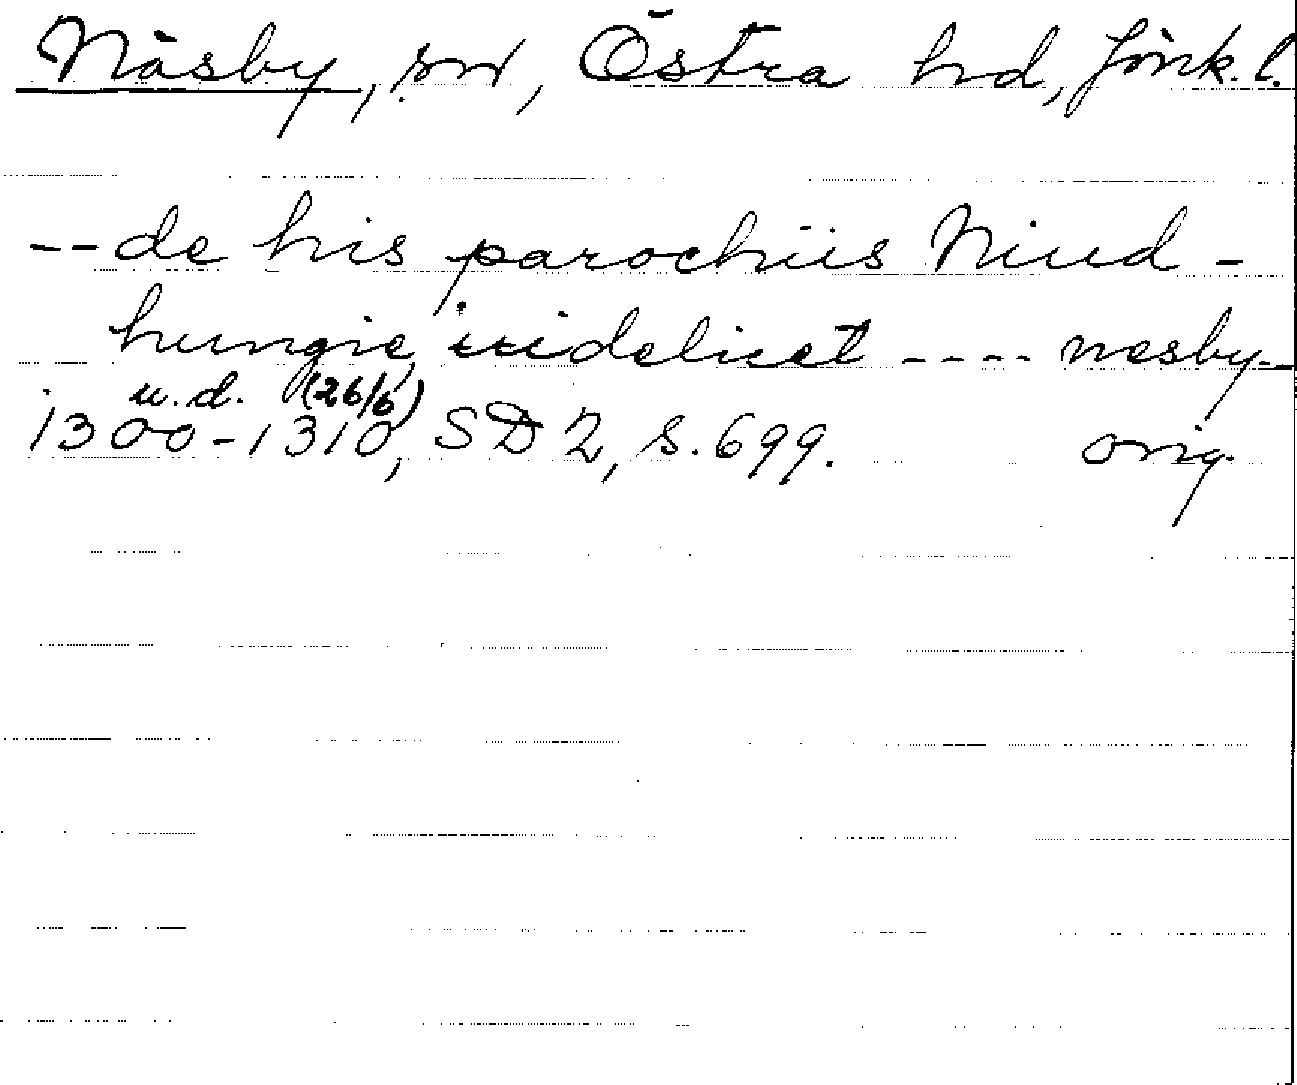 Näsby, sn, Östra hd, Jönk. l.
-- de his parochiis Niud-
hungie, uidelicet ---- nesby--
u.d. (26/6)
1300-1310, SD 2, s. 699. orig.